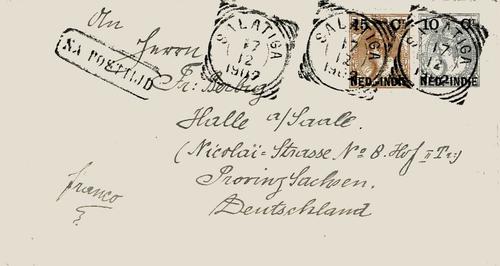 An
Herrn
NA POSTTIJD
SALATIGA
17
12
1902
SALATIGA
17
12
SALATIGA
17
12
15 Ct
NED.-INDIE
10 Ct
NED.-INDIE
Fr:
Halle a/Saale.
(Nicolaï=Strasse No 8. Hof II Tr:)
Provinz Sachsen.
Deutschland
franco